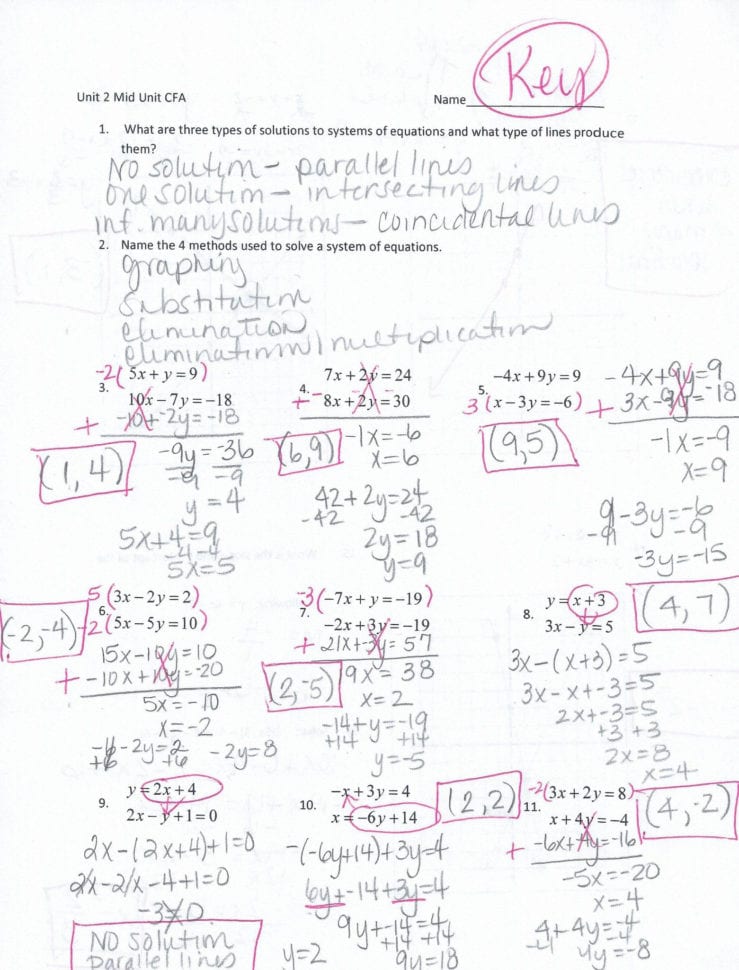 Key
Unit 2 Mid Unit CFA Name
1. What are three types of solutions to systems of equations and what type of lines produce
them?
No solution - parallel lines
one solution - intersecting lines
inf. many solutions - coincidental lines
2. Name the 4 methods used to solve a system of equations.
graphing
substitution
elimination
elimination w/ multiplication
3.
-2(5x + y = 9)
10x - 7y = -18
+ -10x + -2y = -18
-9y = -36
-9 -9
y = 4
5x+4=9
-4 -4
5x=5
(1,4)
4.
7x + 2y = 24
+ - 8x + 2y = 30
-1x = -6
x = 6
42 + 2y = 24
-42 -42
2y = 18
y = 9
(6,9)
5.
-4x + 9y = 9
3(x - 3y = -6)
-4x+9y=9
+ 3x-9y=-18
-1x=-9
x=9
9-3y=-6
-9 -9
-3y=-15
(9,5)
6.
5(3x - 2y = 2)
-2(5x - 5y = 10)
15x-10y=10
+ -10x+10y=-20
5x=-10
x=-2
-6-2y=2
+6 +6
-2y=8
(-2,-4)
7.
-3(-7x + y = -19)
-2x + 3y = -19
+ 21x+-3y=57
19x=38
x=2
-14+y=-19
+14 +14
y=-5
(2,-5)
8.
y = x + 3
3x - y = 5
3x-(x+3)=5
3x-x+-3=5
2x+-3=5
+3 +3
2x=8
x=4
(4,7)
9.
y = 2x + 4
2x - y + 1 = 0
2x-(2x+4)+1=0
2x-2x-4+1=0
-3≠0
No solution
Parallel lines
10.
-x + 3y = 4
x = -6y + 14
-(-6y+14)+3y=4
6y+-14+3y=4
9y+-14=4
+14 +14
9y=18
y=2
(2,2)
11.
-2(3x + 2y = 8)
x + 4y = -4
+ -6x+-4y=-16
-5x=-20
x=4
4+4y=-4
-4 -4
4y=-8
(4,-2)